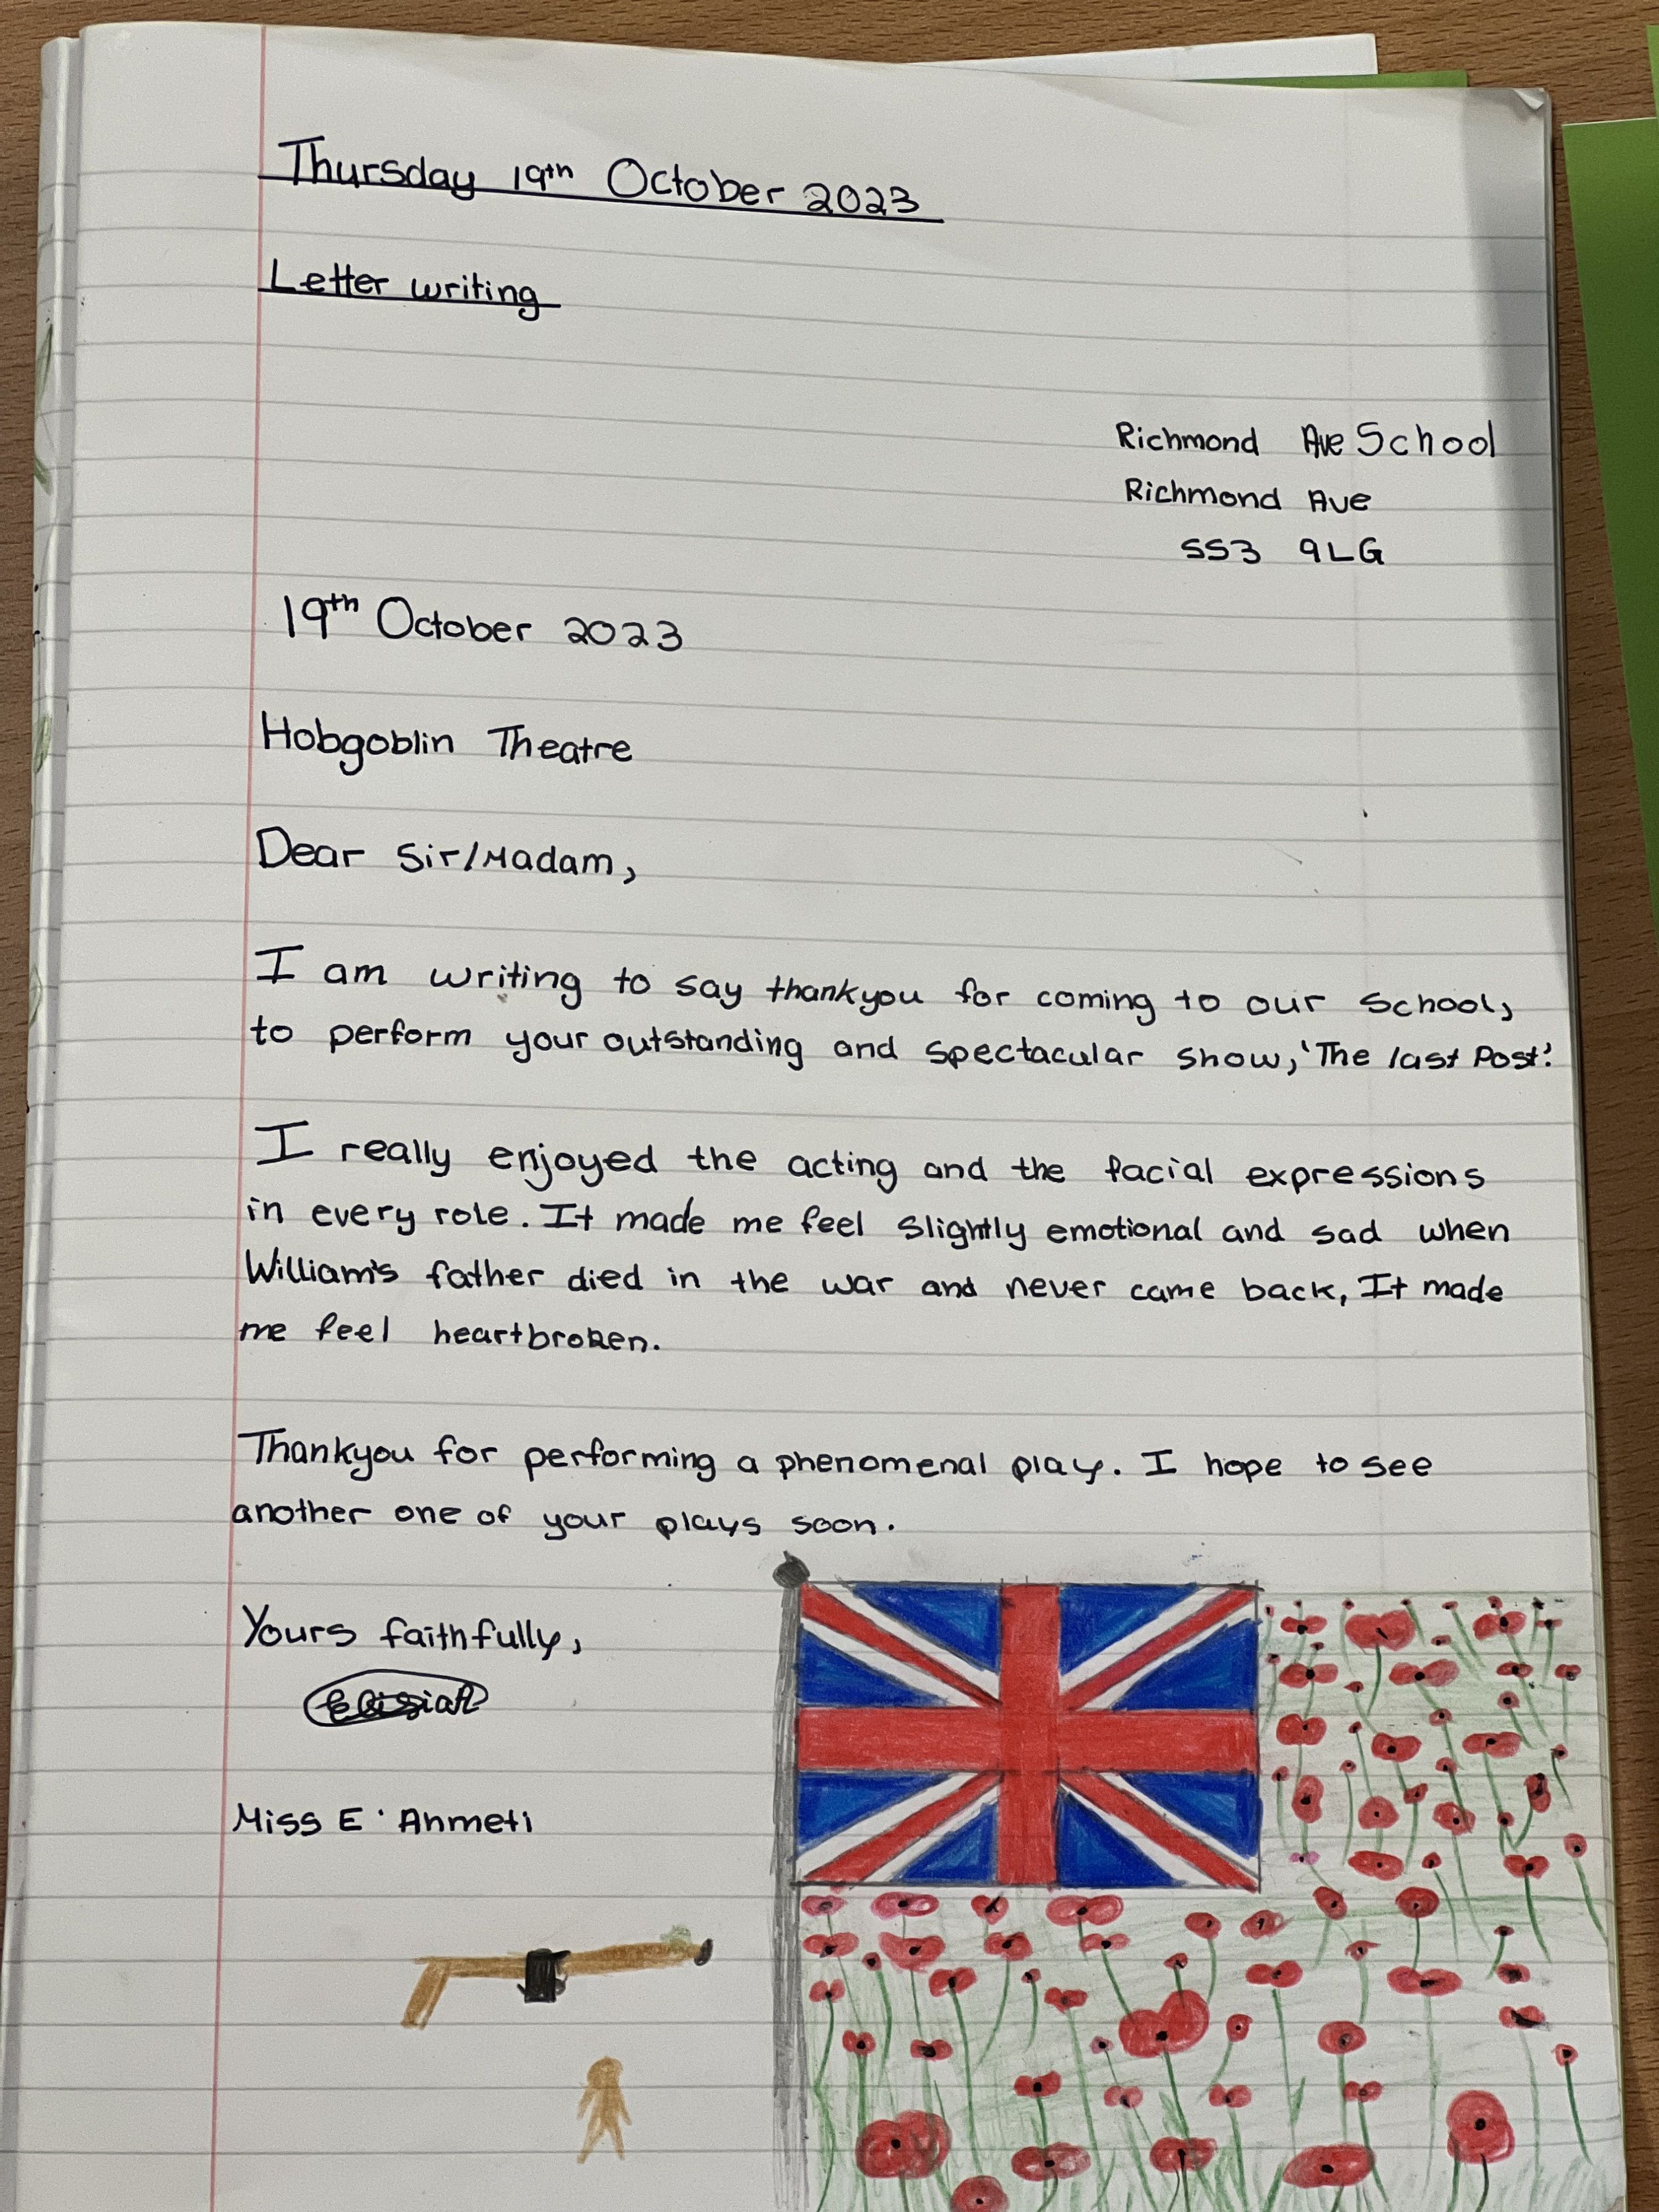 Thursday 19th October 2023
Letter writing
Richmond Ave School
Richmond Ave
SS3 9LG
19th October 2023
Hobgoblin Theatre
Dear Sir/Madam,
I am writing to say thankyou for coming to our School,
to perform your outstanding and spectacular show, 'The last Post'.
I really enjoyed the acting and the facial expressions
in every role. It made me feel slightly emotional and sad when
William's father died in the war and never came back, It made
me feel heartbroken.
Thankyou for performing a phenomenal play. I hope to see
another one of your plays soon.
Yours faithfully,
Miss E. Ahmeti